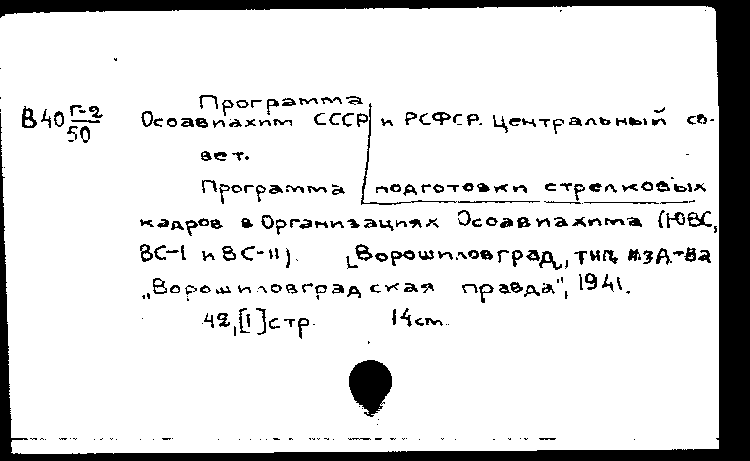 Программа
В40 Г-2/50 Осоавиахим СССР и РСФСР. Центральный со-
вет.
Программа подготовки стрелковых
кадров в Организациях Осоавиахима (ЮВС,
ВС-I и ВС-II). [Ворошиловград], тип. изд-ва
„Ворошиловградская правда", 1941.
42,[1]стр. 14см.